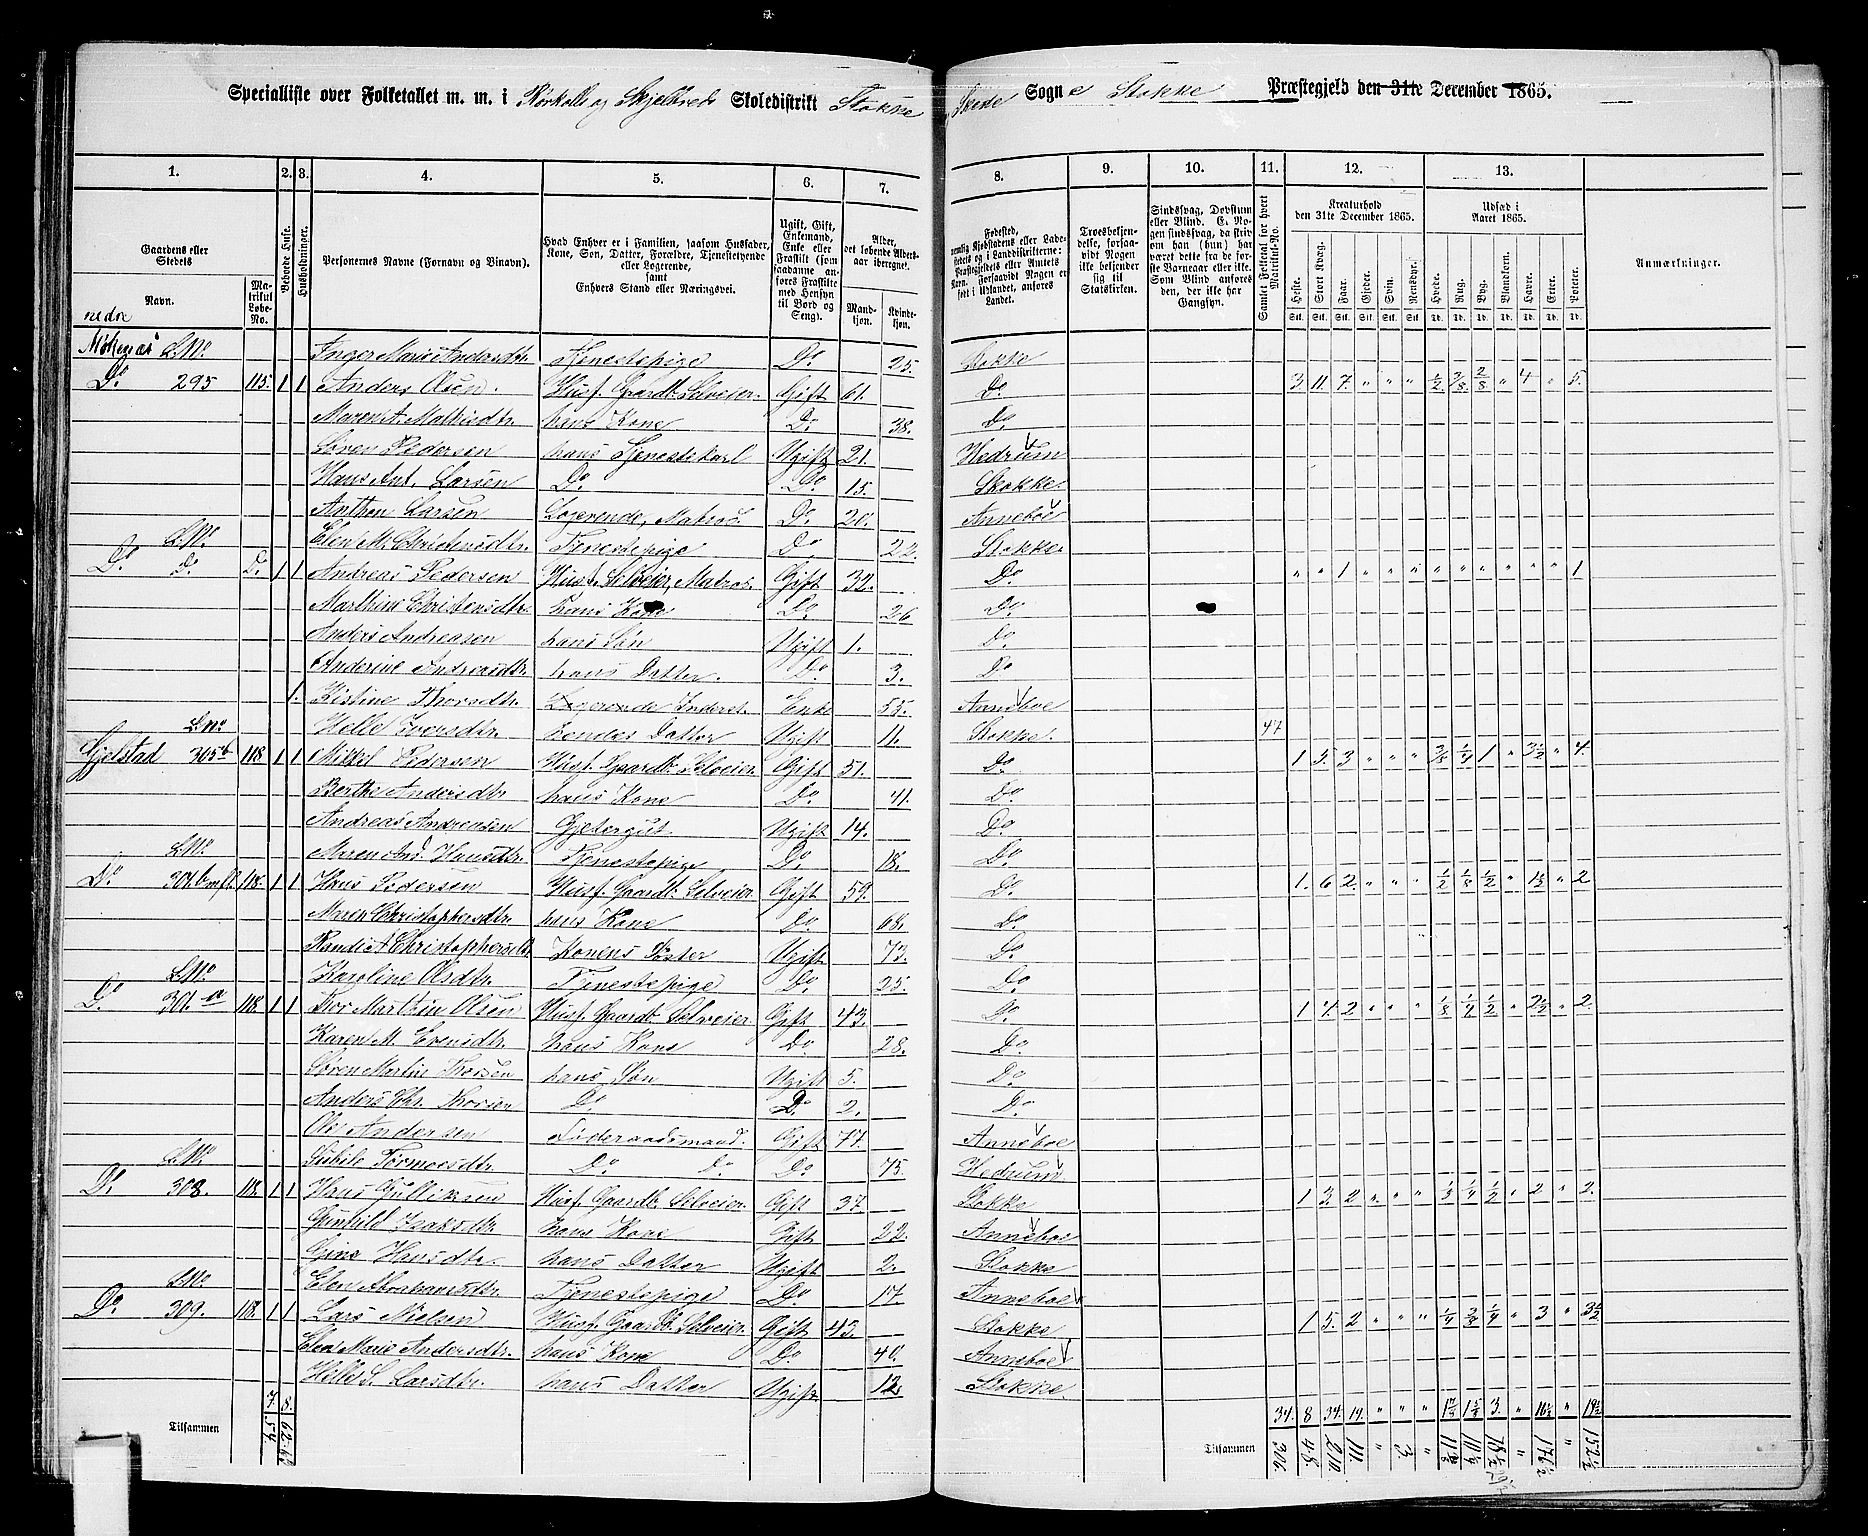 Specialliste over Folketallet m. m. i Rørkolle og Skjelbred Skoledistrikt Stokke Sogn Stokke Præstegjeld den 31te December 1865.
1. 2. 3. 4. 5. 6. 7. 8. 9. 10. 11. 12. 13.
Gaardens eller Stedets
Navn.
Matrikul Løbe-No.
Beboede Huse.
Husholdninger.
Personernes Navne (Fornavn og Tilnavn).
Hvad Enhver er i Familien, saasom Husfader, Kone, Søn, Datter, Forældre, Tjenestetyende eller Logerende, samt Enhvers Stand eller Næringsvei.
Ugift, Gift, Enkemand, Enke eller Fraskilt (som saadanne anføres Fraskilte med Hensyn til Bord og Seng).
Alder, det løbende Alders-aar iberegnet.
Mandkjøn.
Kvindekjøn.
Fødested,
Troesbekjendelse, forsaavidt Nogen ikke bekjender sig til Statskirken.
Sindssvag, Døvstum eller Blind.
Gamlet Folketal for hvert Matrikul-No.
Kreaturhold den 31te December 1865.
Heste. Stort Kvæg. Faar. Gjeder. Svin. Rensdyr.
Udsæd i Aaret 1865.
Hvede. Rug. Byg. Blandkorn. Havre. Erter. Poteter.
Anmærkninger.
nedre
Møkenæs L.No. Inger Marie Andersdtr. Tjenestepige Do. 25. Stokke
Do. 295 115. 1 1 Anders Olsen. Husf. Gaardb. Selveier. Gift 61. Do. 3. 11. 7. " " " 1/2. 3/8. 2/8 " 4 " 5.
Maren A. Mathisdtr. hans Kone Do. 38. Do.
Søren Pedersen hans Tjenestekarl Ugift 21. Hedrum
Hans Ant. Larsen Do. Do. 15. Stokke
Anthon Larsen Logerende, Matros Do. 20. Anneboe
L.No. Elen M. Christensdtr. Tjenestepige Do. 22. Stokke
Do. Do. Do. 1 1 Andreas Pedersen Husf. Selveier, Matros Gift 32. Do. " " 1 " " " " " " " " " 1
Marthine Christensdtr. hans Kone Do. 26 Do.
Anders Andreasen hans Søn Ugift 1. Do.
Anderine Andreasdtr. hans Datter. Do. 3. Do.
1. Kistine Thorsdtr. Logerende Inderst. Enke 55. Anneboe
L.No. Helle Iversdtr. hendes Datter Ugift 11. Stokke. 47
Gjelstad 305b 118 1 1 Mikkel Pedersen Husf. Gaardb. Selveier Gift 51. Do. 1 5. 3 " " " 3/8 1/4 1 " 3 1/2 " 4.
Berthe Andersdtr. hans Kone Do. 41. Do.
Andreas Andreasen Gjetergut. Ugift 14. Do.
L.No. Maren And. Hansdtr. Tjenestepige Do. 18. Do.
Do. 118. 1 1 Hans Pedersen Husf. Gaardb. Selveier Gift 59. Do. 1. 6 2. " " " 1/2 1/8 1/2 " " 2.
Maren Christophersdtr. hans Kone Do. 68. Do.
Randi A Christophersdtr. Konens Søster Ugift 73. Do.
L.No Karoline Olsdtr. Tjenestepige Do. 25. Do.
Do 301.a 118. 1 1 Thor Marthin Olsen Husf. Gaardb. Selveier. Gift 43. Do. 1 4. 2 " " " 1/8 1/4 1/2 " " 2.
Karen M. Evensdtr. hans Kone Do. 28. Do.
Søren Martin Thorsen hans Søn Ugift 5. Do.
Anders Chr. Thorsen Do. Do. 2. Do.
Ole Andersen Føderaadsmand. Gift 77. Anneboe
L.No. Sibile Tormoesdtr. Do Do Do 75. Hedrum
Do. 308. 118. 1 1 Hans Gulliksen Husf. Gaardb. Selveier. Gift 37 Stokke 1 3. 2 " " " 1/4 1/2 " 2 " 2.
Gunhild Isaksdtr. hans Kone Gift 22. Anneboe
Gine Hansdtr. hans Datter Ugift 2. Stokke
L.No Elen Abrahamsdtr. Tjenestepige Do. 17. Anneboe
Do. 309. 118. 1 1 Lars Nielsen Husf. Gaardb. Selveier. Gift 43. Stokke 1 5. 2 " " " 1/4 3/8 1/4 " 3 " 3 1/2
Elen Marie Andersdtr. hans Kone Do. 40. Anneboe
Helle S. Larsdtr. hans Datter Ugift 12. Stokke.
Tilsammen 7. 8. 34. 8 34. 19. " " " 3. " 16 1/2 " 19 1/2
54. 62. Tilsammen 306. 48. 210. 111. " 3. " " 176 1/2 " 152 1/2